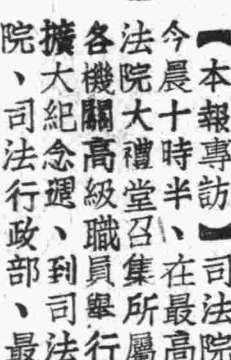 【本報專訪】司法院
今晨十時半、在最高
法院大禮堂召集所屬
各機關高級職員舉行
擴大紀念週、到司法
院、司法行政部、最